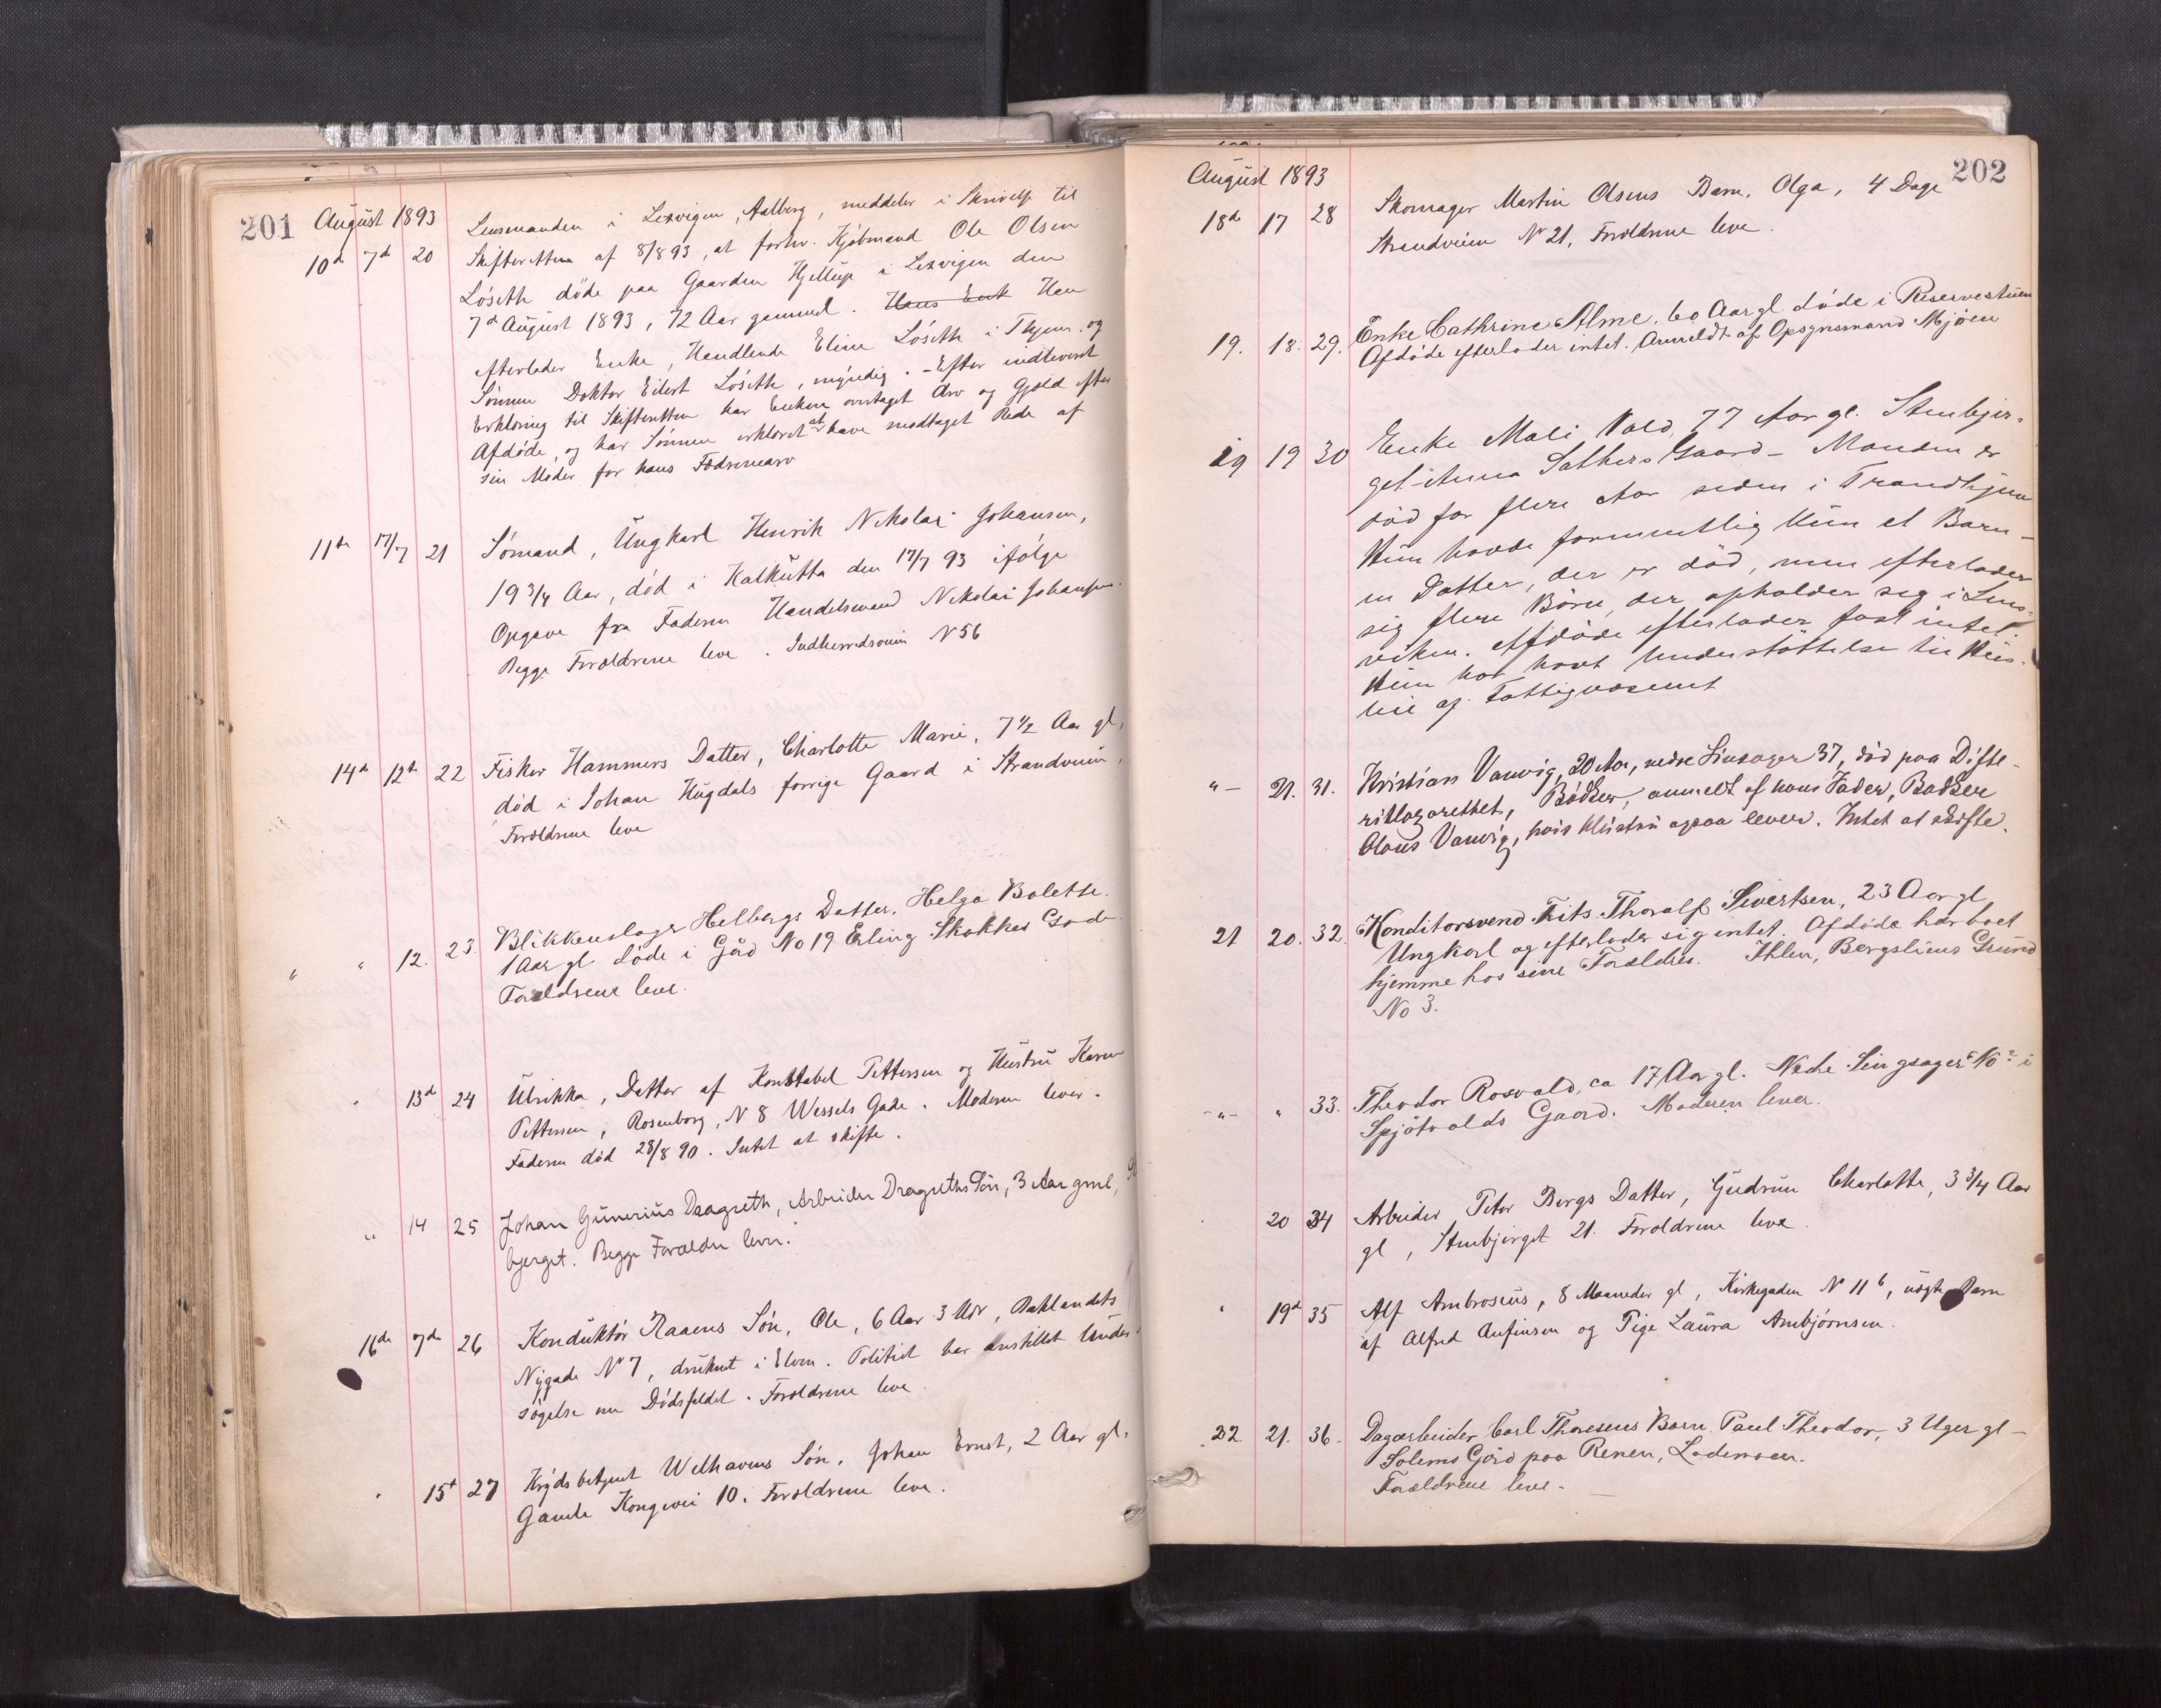 201 August 1893
10de 7de 20 Lensmanden i Lexvigen, Aalberg, meddeler i Skrivelse til
Skifteretten af 8/8 93, at forhv. Kjøbmand Ole Olsen
Løseth døde paa Gaarden Hjellup i Lexvigen den
7de August 1893, 72 Aar gammel. Hans Enk Han
efterlader Enke, Handlende Eline Løseth i Thjem. og
Sønnen Doktor Eilert Løseth, myndig. - Efter indleveret
Erklæring til Skifteretten har Enken overtaget Arv og Gjæld efter
Afdøde, og har Sønnen erklæret at have modtaget Rede af
sin Moder for hans Fædrenearv
11te 17/7 21 Sømand, Ungkarl Henrik Nikolai Johansen,
19 3/4 Aar, død i Kalkutta den 17/7 93 ifølge
Opgave fra Faderen Handelsmand Nikolai Johansen.
Begge Forældrene leve. Indherredsveien N 56
14de 12te 22 Fisker Hammers Datter, Charlotte Marie, 7 1/2 Aar gl,
død i Johan Hugdals forrige Gaard i Strandveien,
Forældrene leve
" " 12. 23. Blikkenslager Helbergs Datter, Helga Bolette.
1 Aar gl døde i Gård No 19 Erling Skakkes Gade
Forældrene leve.
13de 24 Ulrikka, Datter af Konstabel Pettersen og Hustru Karen
Pettersen, Rosenborg, N 8 Wessels Gade. Moderen lever.
Faderen død 28/8 90. Intet at skifte.
" 14 25 Johan Gunerius Dragseth, Arbeider Dragseths Søn, 3 Aar gml,
bjerget. Begge Forældre lever.
16de 7de 26 Konduktør Raaens Søn, Ole, 6 Aar 3 Mdr, Baklandets
Nygade No 7, druknet i Elven. Politiet har anstillet Under-
søgelse om Dødsfaldet. Forældrene leve.
15de 27 Krydsbetjent Welhavens Søn, Johan Ernst, 2 Aar gl.
Gamle Kongevei 10. Forældrene leve.
August 1893 202
18de 17 28 Skomager Martin Olsens Barn, Olga, 4 Dage
Strandveien No 21, Forældrene leve.
19. 18. 29. Enke Cathrine Alme, 60 Aar gl døde i Reservestuen
Afdøde efterlader intet. Anmeldt af Opsynsmand Mjøen
19 19 30 Enke Mali Vold, 77 Aar gl. Stenbjer-
get - Anna Sathers Gaard - Manden er
død for flere Aar siden i Trondhjem
Hun havde formentlig kun et Barn -
en Datter, der er død, men efterlader
sig flere Børn, der opholder sig i Lens-
viken. Afdøde efterlader fast intet.
Hun har havt Understøttelse til Hus-
leie af Fattigvæsenet
" - 21. 31. Kristian Vanvig, 20 Aar, nedre Sinsager 37, død paa Difte-
ritlazarettet, Bødker, anmelt af hans Fader, Bødker
Olaus Vanvig, hvis Hustru ogsaa lever. Intet at skifte.
21 20. 32. Konditorsvend Frits Thoralf Sivertsen, 23 Aar gl
Ungkarl og efterlader sig intet. Afdøde har boet
hjemme hos sine Forældre. Ihlen, Bergsliens Grund
No 3.
- " - " 33. Theodor Rosvald, ca 17 Aar gl. Nedre Singsager No ? i
Spjøtvolds Gaard. Moderen lever.
20 34 Arbeider Peter Bergs Datter, Gudrun Charlotte, 3 3/4 Aar
gl, Stenbjerget 21. Forældrene leve.
19de 35 Alf Ambrosius, 8 Maaneder gl, Kirkegaden No 11 b, uægte Barn
af Alfred Anfinsen og Pige Laura Arnbjørnsen.
22. 21. 36. Dagarbeider Carl Thoresens Barn Paul Theodor, 3 Uger gl -
Solems Gård paa Renen, Lademoen.
Forældrene leve. -